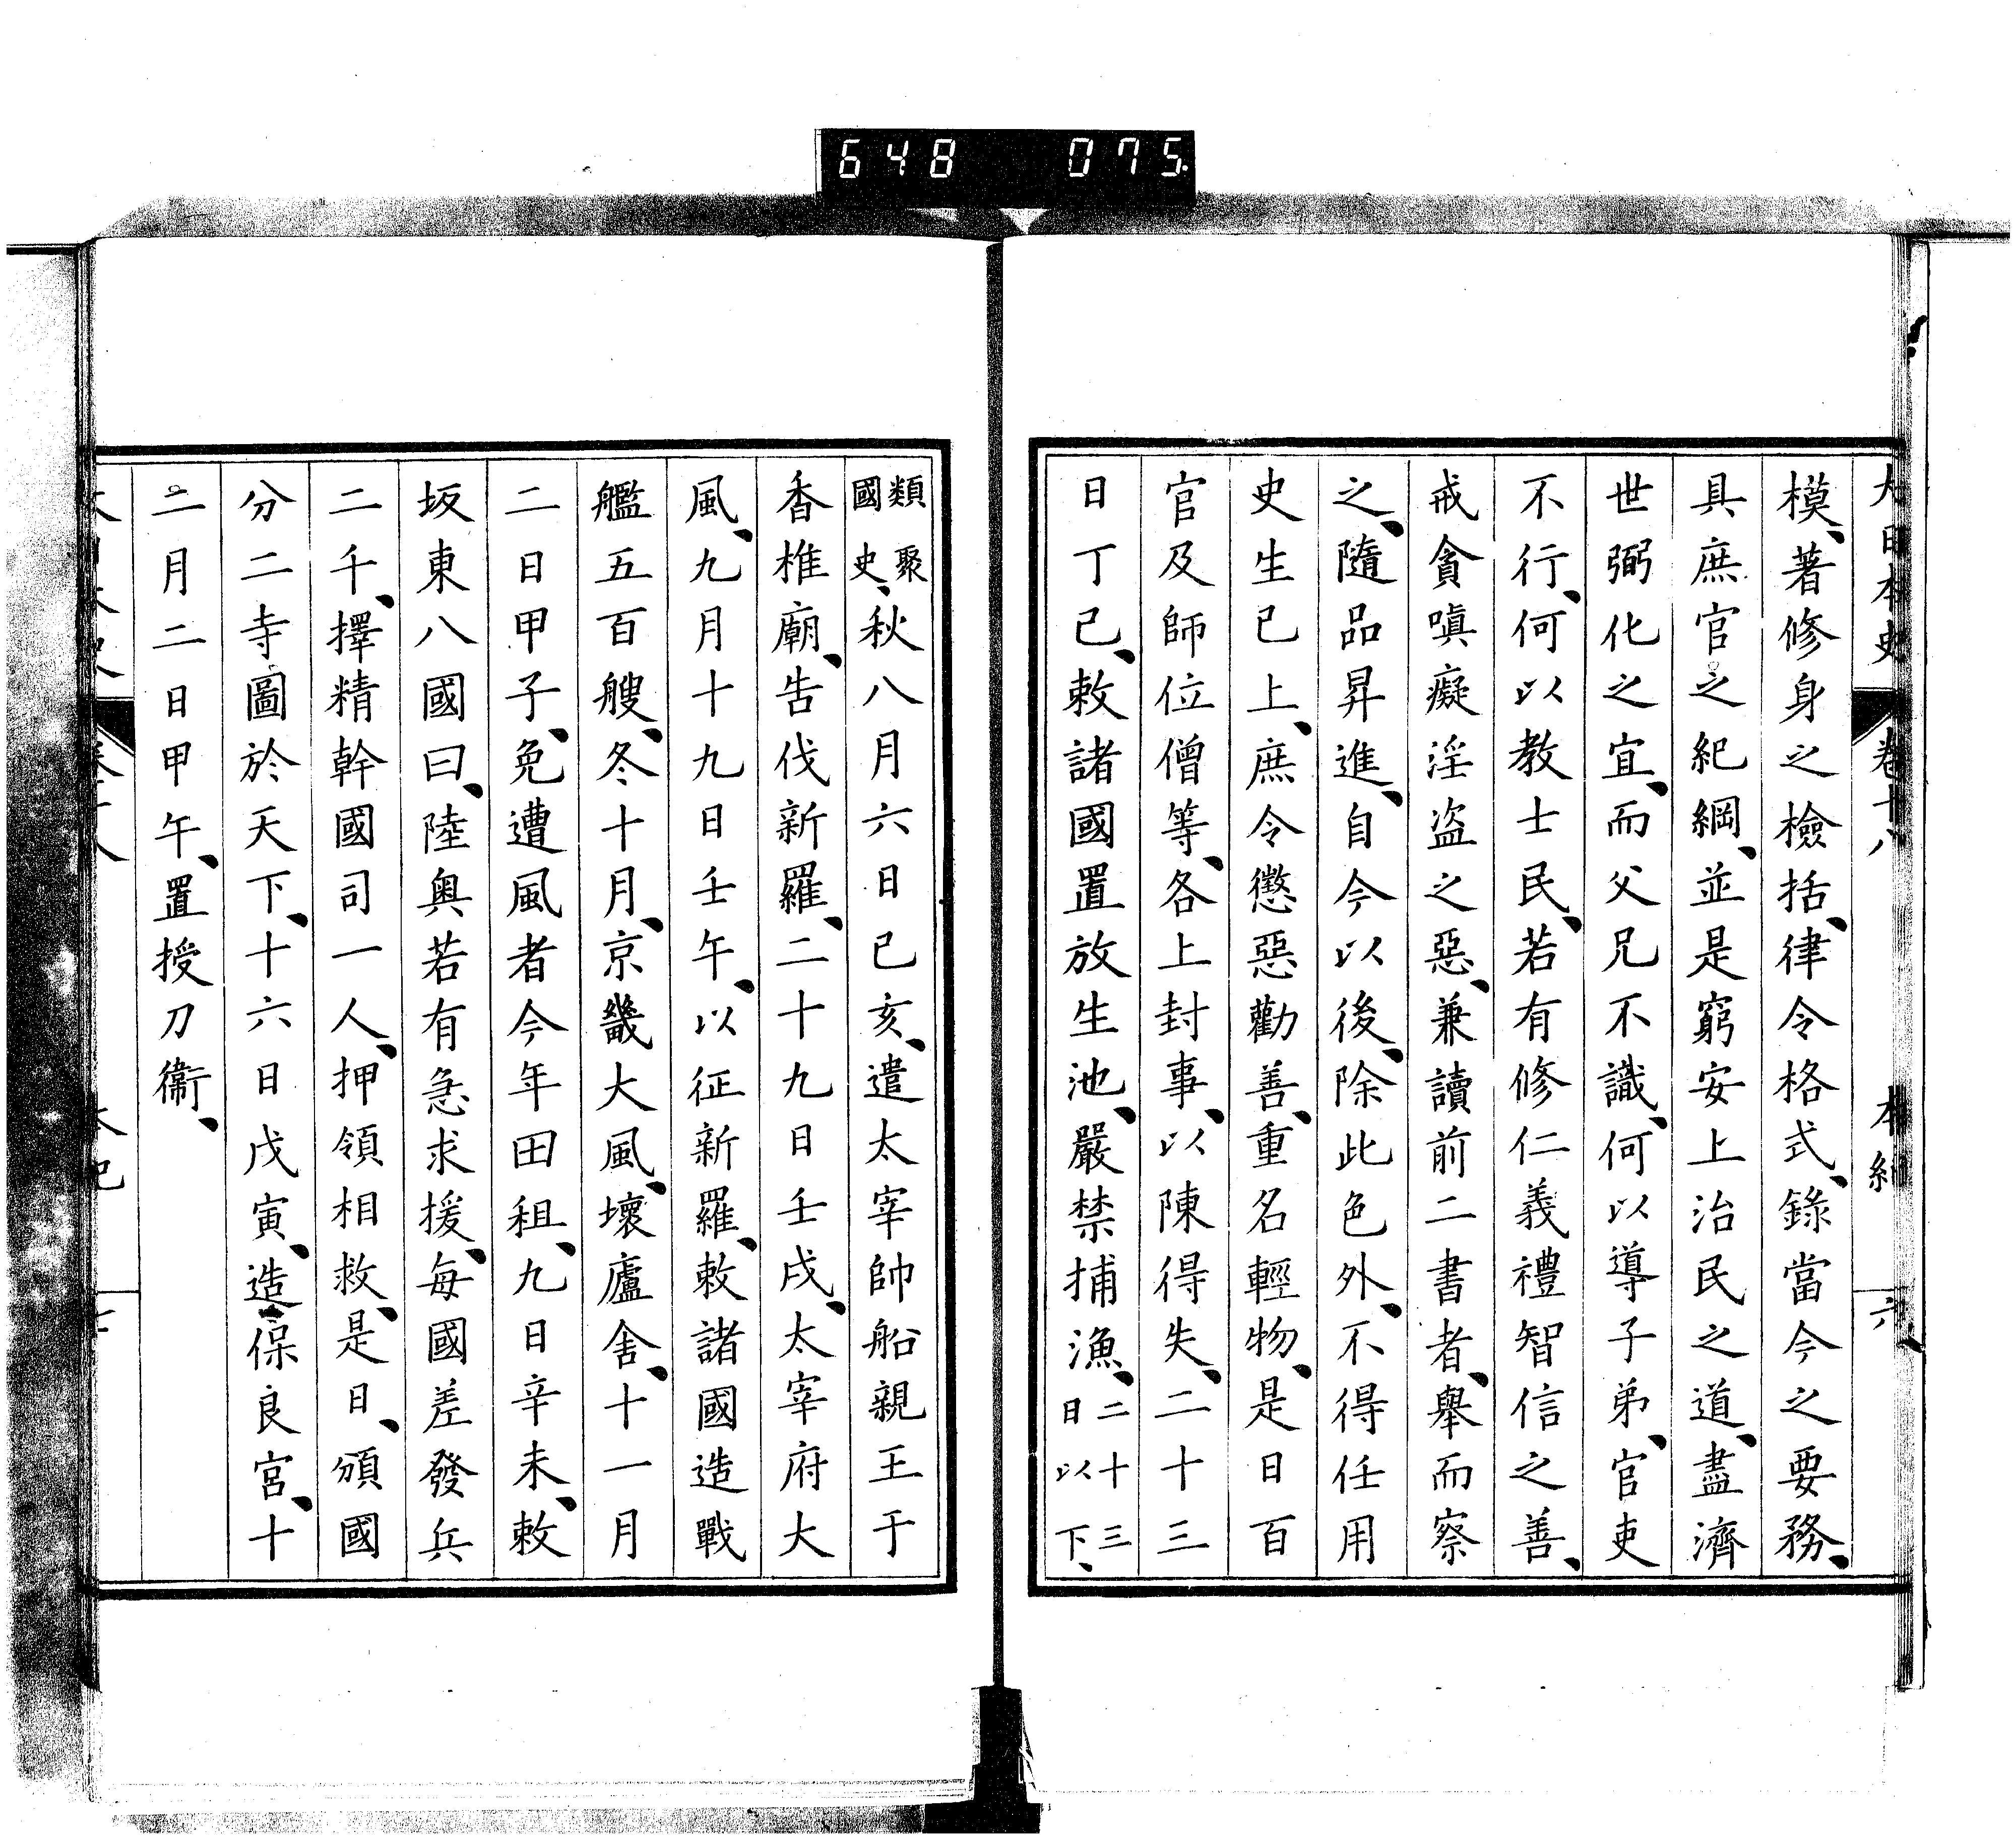 648 075
大日本史 卷十八 本紀 六
模、著修身之檢括、律令格式、錄當今之要務、
具庶官之紀綱、並是窮安上治民之道、盡濟
世弼化之宜、而父兄不識、何以導子弟、官吏
不行、何以教士民、若有修仁義禮智信之善、
戒貪嗔癡淫盜之惡、兼讀前二書者、舉而察
之、隨品昇進、自今以後、除此色外、不得任用
史生已上、庶令懲惡勸善、重名輕物、是日百
官及師位僧等、各上封事、以陳得失、二十三
日丁巳、敕諸國置放生池、嚴禁捕漁、二十三
日以下、
類聚
國史、秋八月六日己亥、遣太宰帥船親王于
香椎廟、告伐新羅、二十九日壬戌、太宰府大
風、九月十九日壬午、以征新羅、敕諸國造戰
艦五百艘、冬十月、京畿大風、壞廬舍、十一月
二日甲子、免遭風者今年田租、九日辛未、敕
坂東八國曰、陸奧若有急求援、每國差發兵
二千、擇精幹國司一人、押領相救、是日、頒國
分二寺圖於天下、十六日戊寅、造保良宮、十
二月二日甲午、置授刀衞、